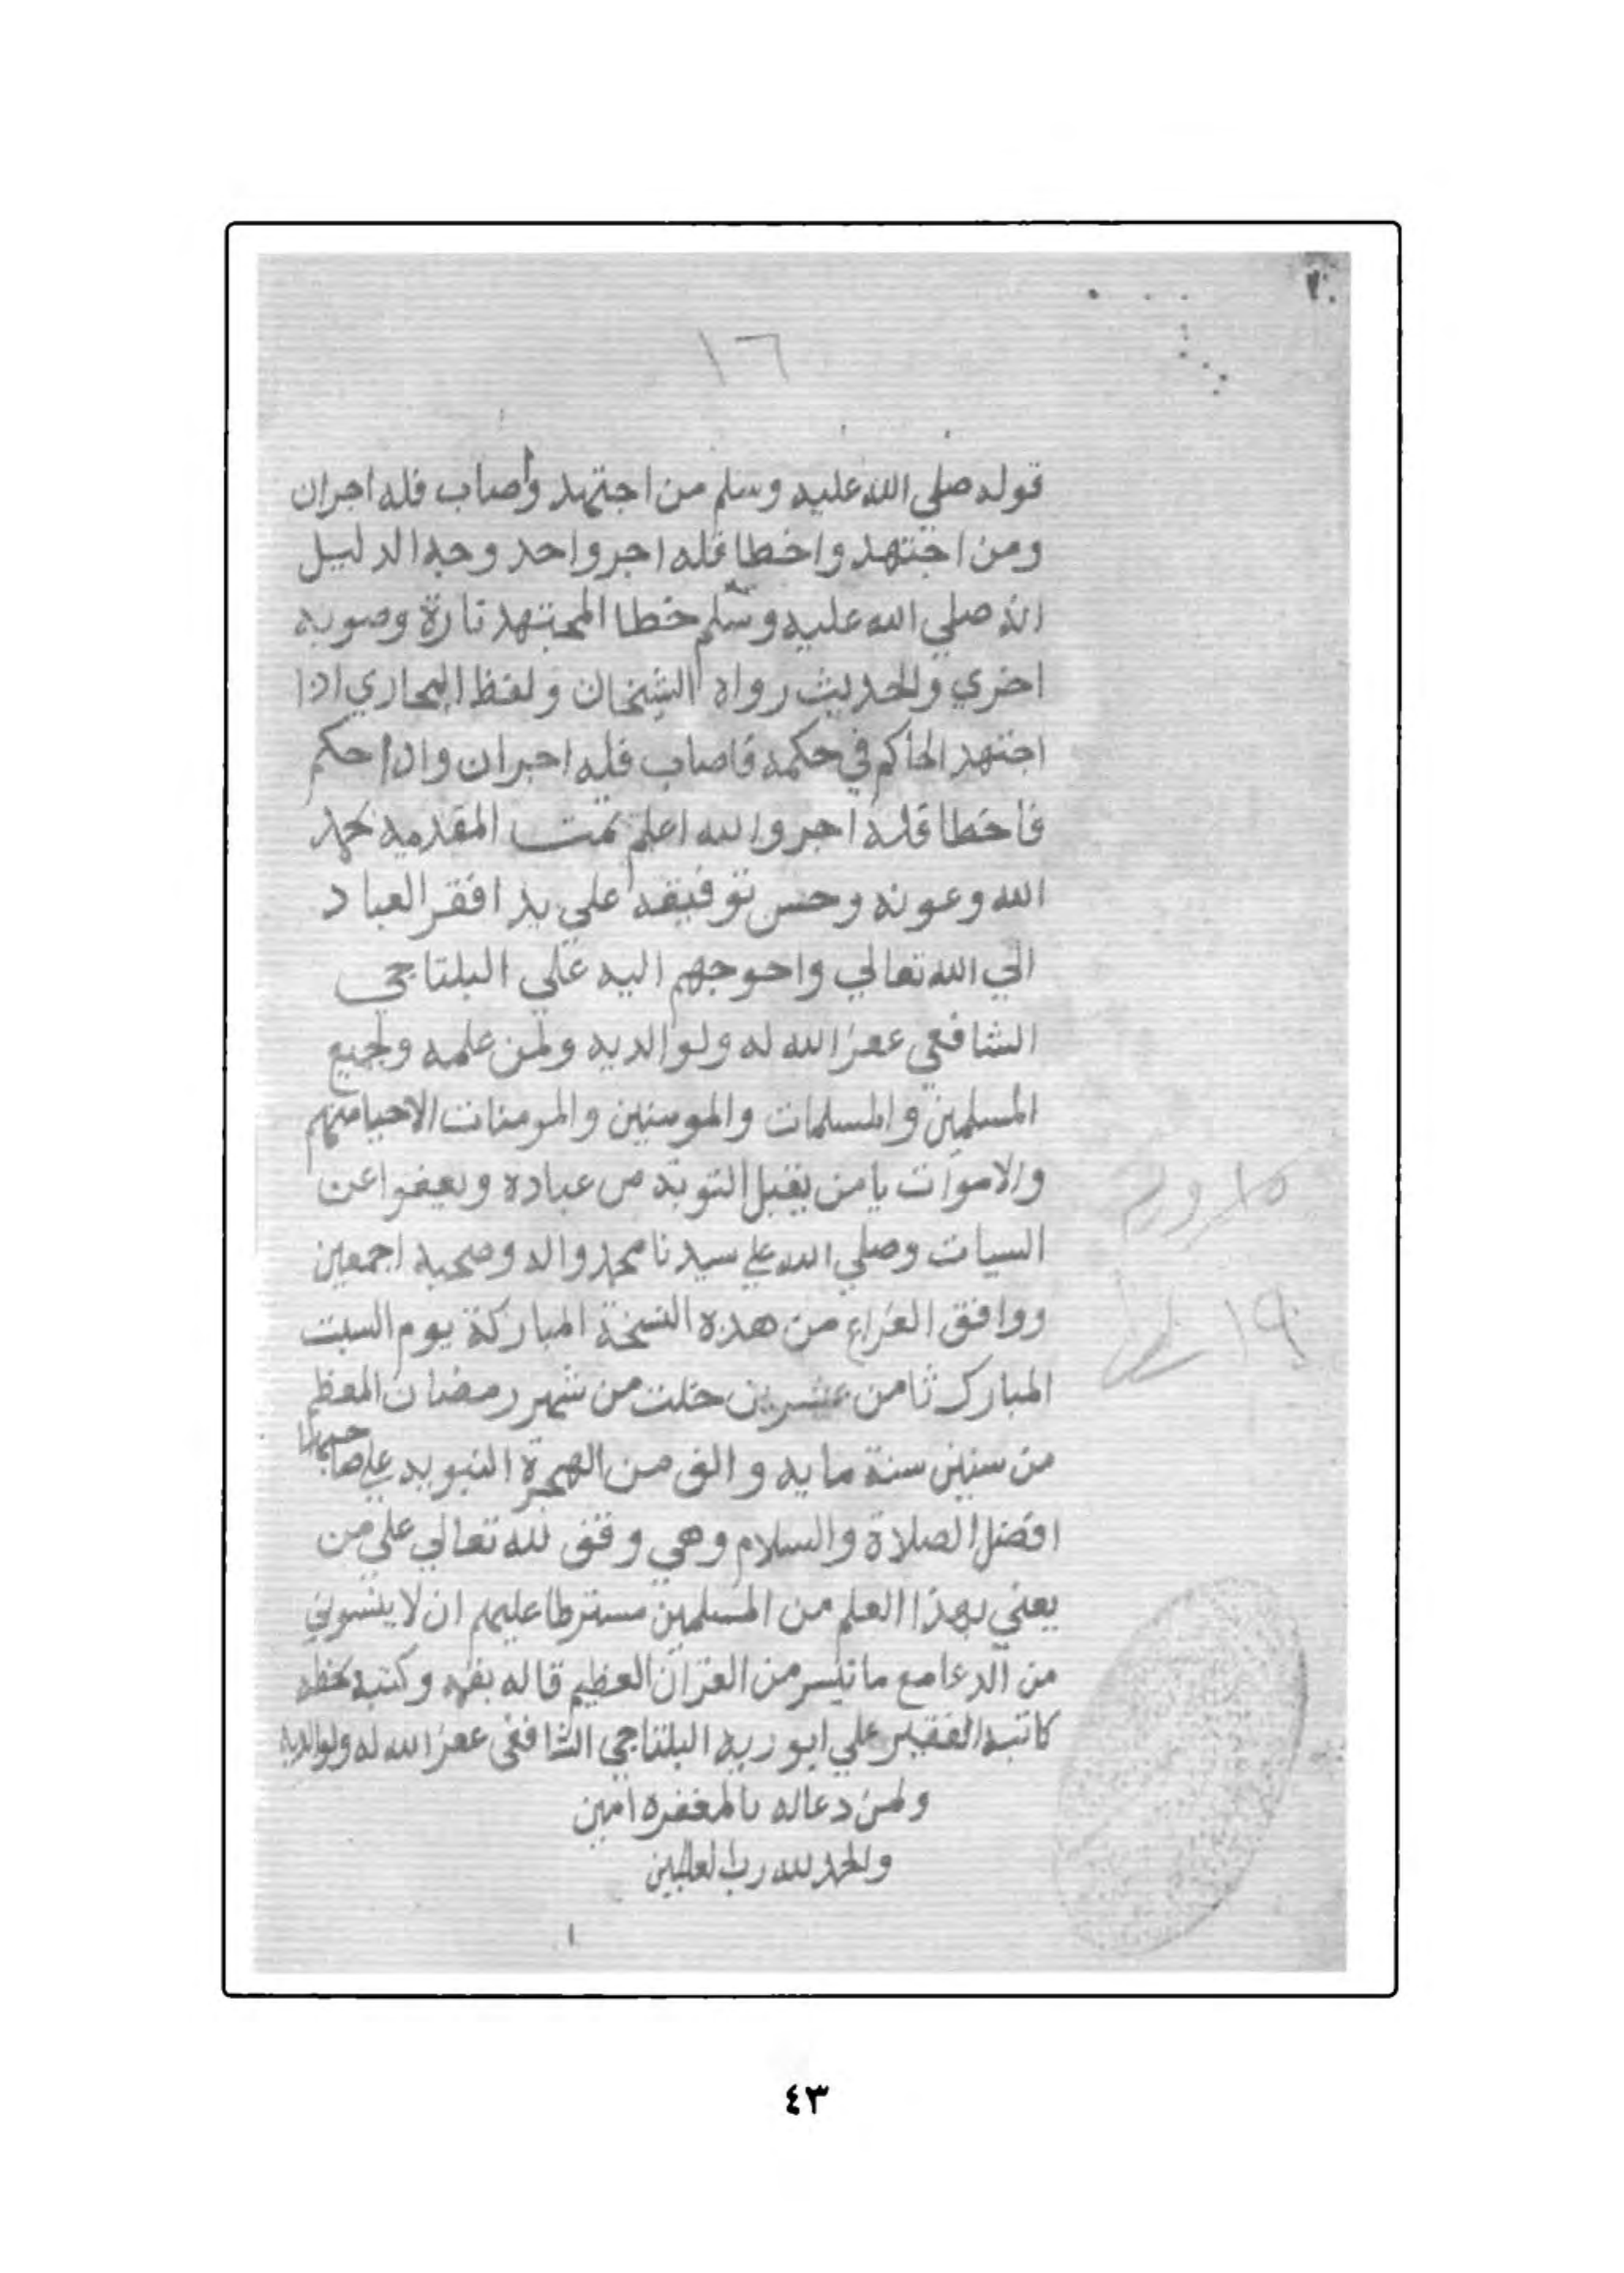 ١٦
قوله صلي الله عليه وسلم من اجتهد وأصاب فله اجران
ومن اجتهد واخطا فله اجر واحد وجه الدليل
انه صلي الله عليه وسلم خطا المجتهد تارة وصوبه
اخري والحديث رواه الشيخان ولفظ البخاري اذا
اجتهد الحاكم في حكمه فاصاب فله اجران واذا حكم
فاخطا فله اجر والله اعلم تمت المقدمه بحمد
الله وعونه وحسن توفيقه علي يد افقر العباد
الي الله تعالي واحوجهم اليه علي البلتاجي
الشافعي غفر الله له ولوالديه ولمن علمه ولجميع
المسلمين والمسلمات والمومنين والمومنات الاحيا منهم
والاموات يا من يقبل التوبة من عباده ويعفوا عن
السيات وصلي الله علي سيدنا محمد واله وصحبه اجمعين
ووافق الفراغ من هذه النسخة المباركة يوم السبت
المبارك ثامن عشرين خلت من شهر رمضان المعظم
من سنين سنة مايه والف من الهجرة النبويه علي صاحبها
افضل الصلاة والسلام وهي وقف لله تعالي علي من
يعني بهذا العلم من المسلمين مسترطا عليهم ان لا ينسوني
من الدعا مع ما تيسر من القران العظيم قاله بفمه وكتبه بخطه
كاتبه الفقير علي ابو ريه البلتاجي الشافعي غفر الله له ولوالديه
ولمن دعا له بالمغفره امين
والحمد لله رب العالمين
٤٣